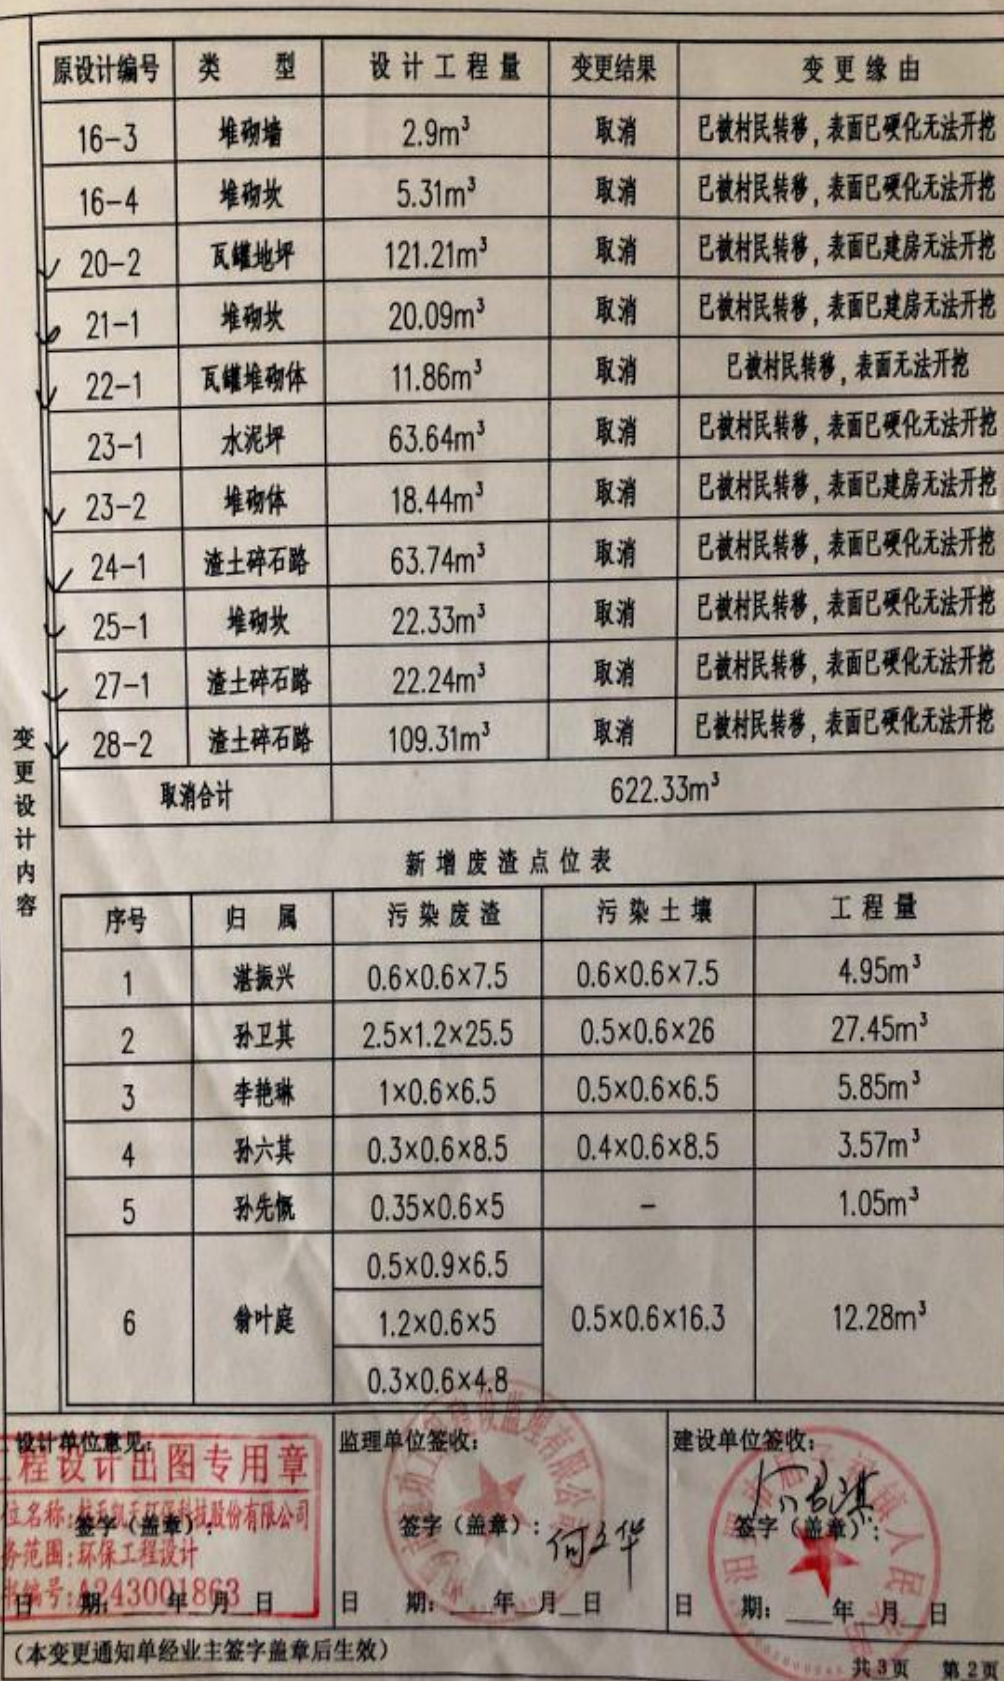 原设计编号 类 型 设计工程量 变更结果 变更缘由
16-3 堆砌墙 2.9m³ 取消 已被村民转移,表面已硬化无法开挖
16-4 堆砌坎 5.31m³ 取消 已被村民转移,表面已硬化无法开挖
20-2 瓦罐地坪 121.21m³ 取消 已被村民转移,表面已建房无法开挖
21-1 堆砌坎 20.09m³ 取消 已被村民转移,表面已建房无法开挖
22-1 瓦罐堆砌体 11.86m³ 取消 已被村民转移,表面无法开挖
23-1 水泥坪 63.64m³ 取消 已被村民转移,表面已硬化无法开挖
23-2 堆砌体 18.44m³ 取消 已被村民转移,表面已建房无法开挖
24-1 渣土碎石路 63.74m³ 取消 已被村民转移,表面已硬化无法开挖
25-1 堆砌坎 22.33m³ 取消 已被村民转移,表面已硬化无法开挖
27-1 渣土碎石路 22.24m³ 取消 已被村民转移,表面已硬化无法开挖
28-2 渣土碎石路 109.31m³ 取消 已被村民转移,表面已硬化无法开挖
取消合计 622.33m³
变更设计内容
新增废渣点位表
序号 归 属 污染废渣 污染土壤 工程量
1 湛振兴 0.6×0.6×7.5 0.6×0.6×7.5 4.95m³
2 孙卫其 2.5×1.2×25.5 0.5×0.6×26 27.45m³
3 李艳琳 1×0.6×6.5 0.5×0.6×6.5 5.85m³
4 孙六其 0.3×0.6×8.5 0.4×0.6×8.5 3.57m³
5 孙先慨 0.35×0.6×5 – 1.05m³
6 翁叶庭 0.5×0.9×6.5 0.5×0.6×16.3 12.28m³
1.2×0.6×5
0.3×0.6×4.8
设计单位意见: 监理单位签收: 建设单位签收:
工程设计出图专用章
位名称: 凯天环保科技股份有限公司
务范围:环保工程设计
编号:A243001863
签字(盖章): 签字(盖章): 何立华 签字(盖章):
日 期: 年 月 日 日 期: 年 月 日 日 期: 年 月 日
监理有限公司
镇人民
(本变更通知单经业主签字盖章后生效)
共3页 第2页